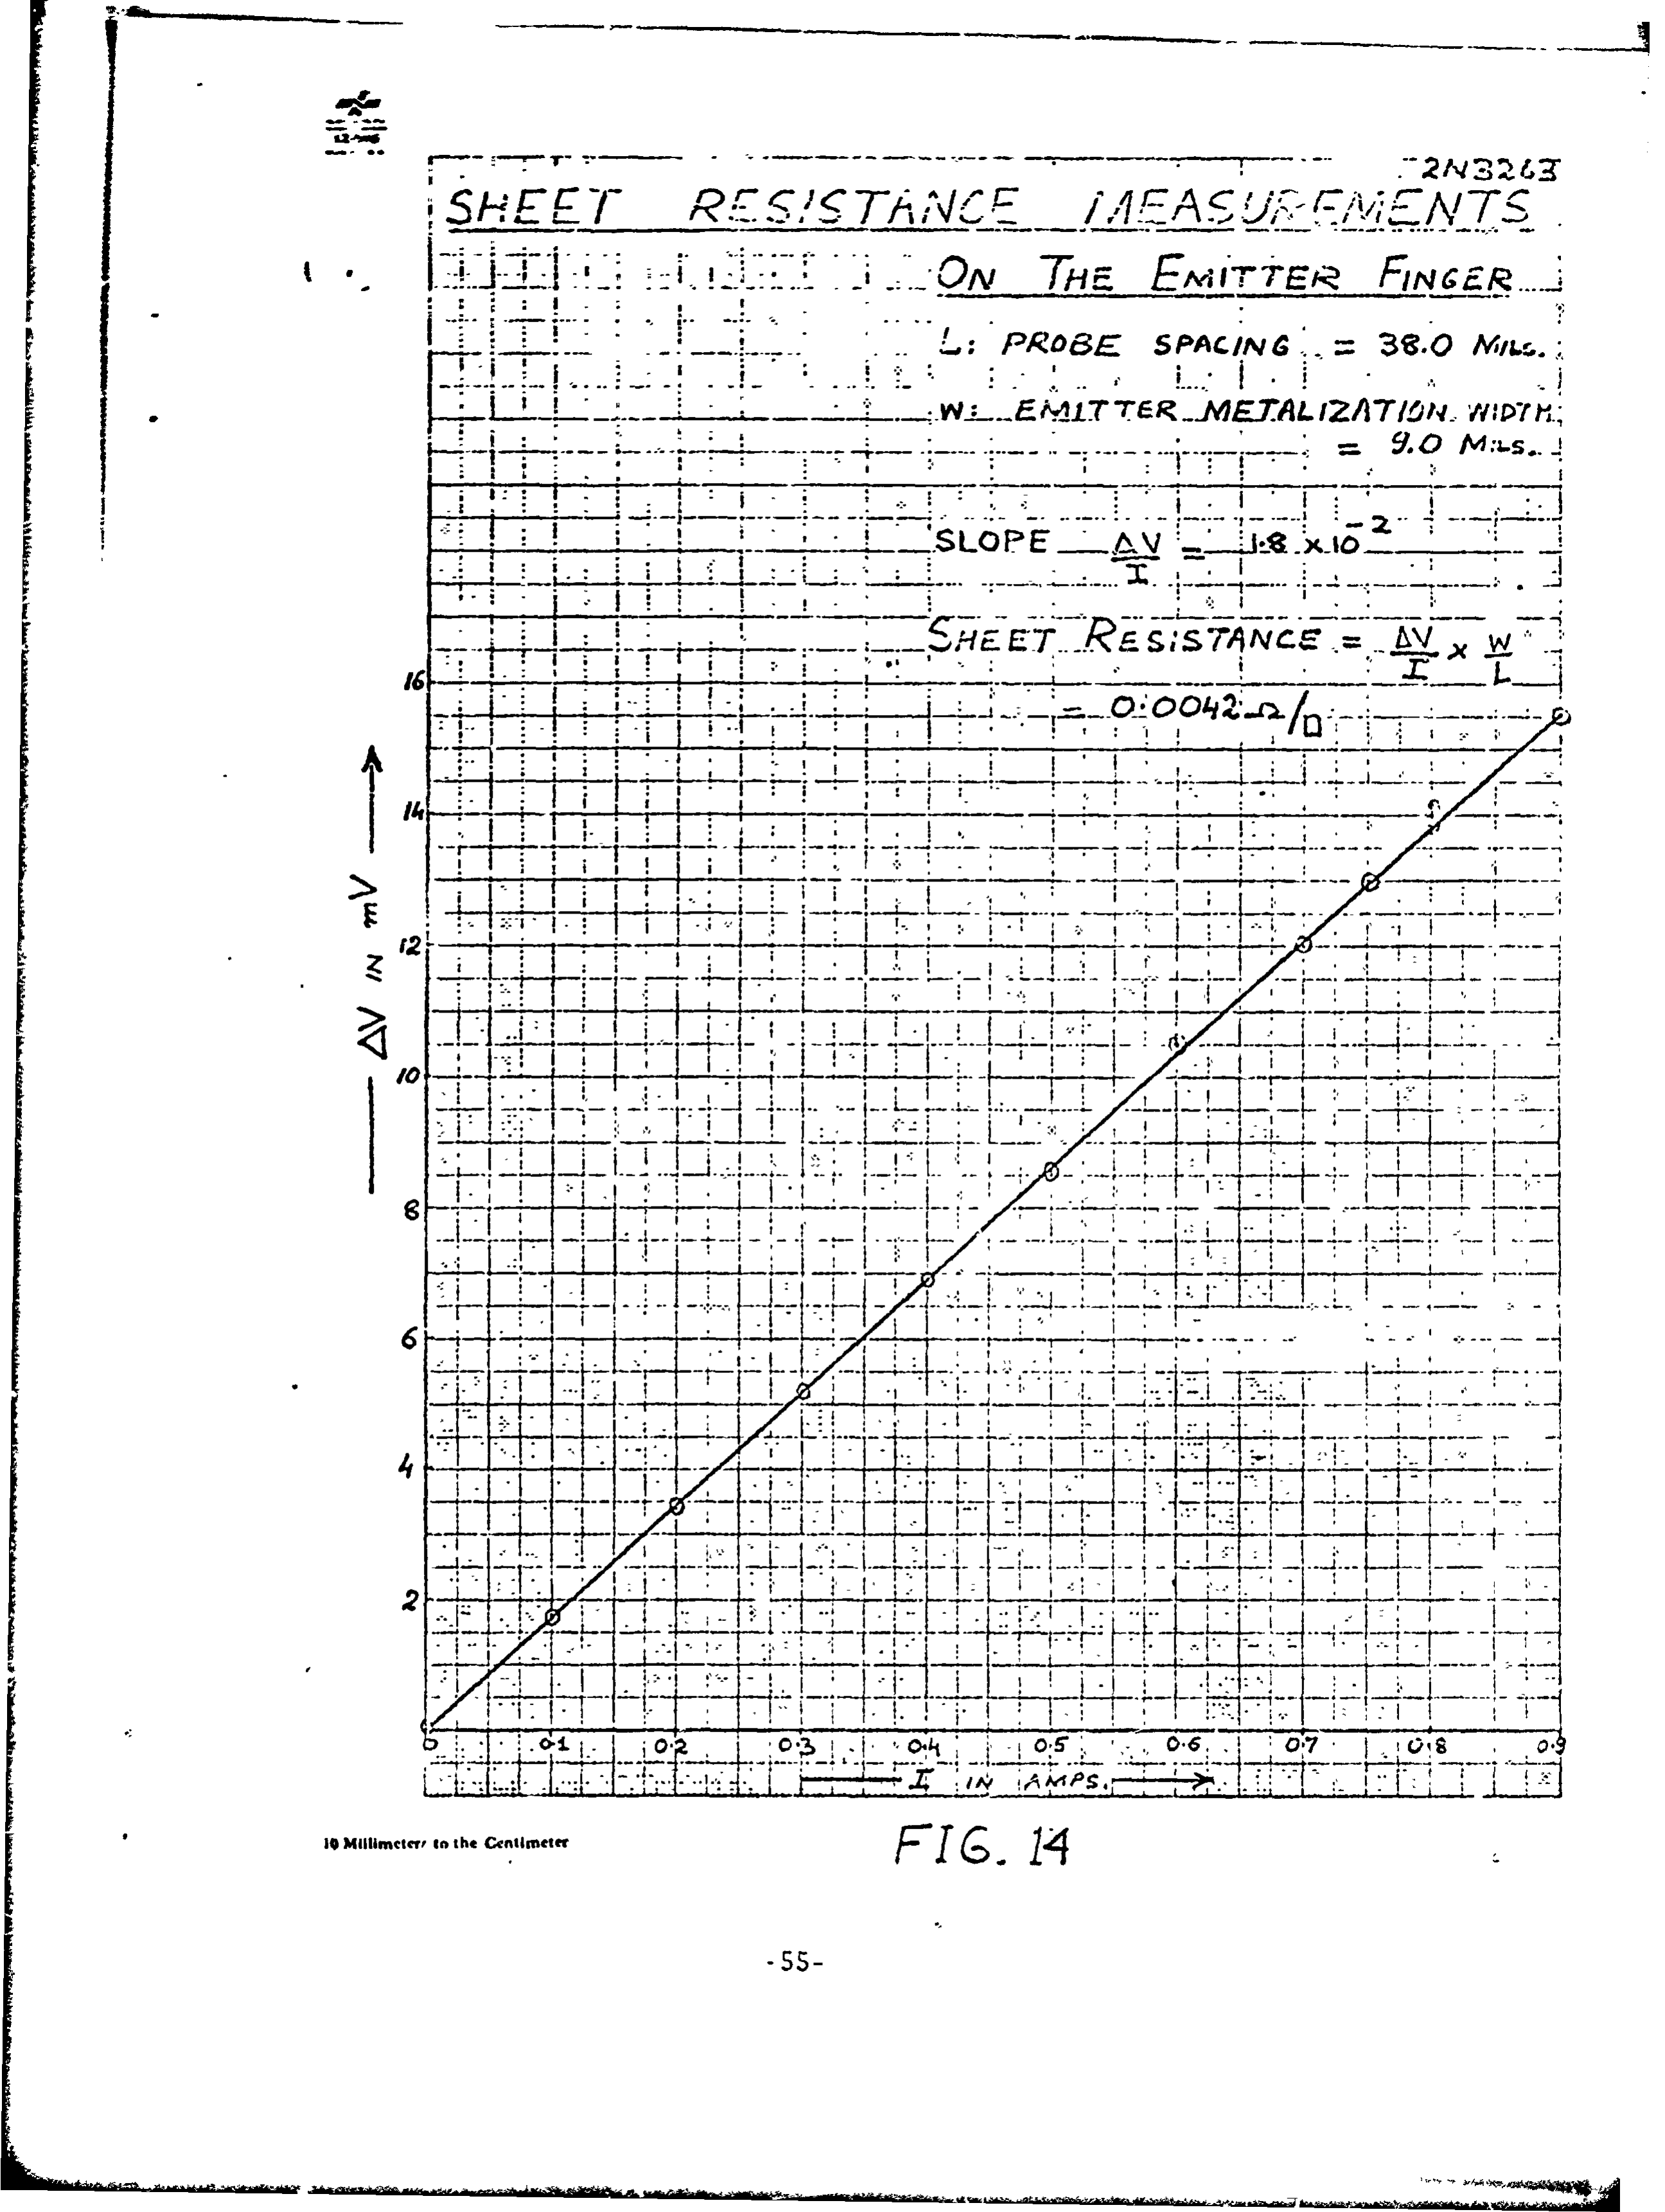 2N3263
SHEET RESISTANCE MEASUREMENTS
ON THE EMITTER FINGER
L: PROBE SPACING = 38.0 MILS.
W: EMITTER METALIZATION WIDTH
= 9.0 MILS.
SLOPE ΔV/I = 1.8 x 10^-2
SHEET RESISTANCE = ΔV/I x W/L
= 0.0042 Ω/□
16
14
12
10
8
6
4
2
ΔV IN mV
0 0.1 0.2 0.3 0.4 0.5 0.6 0.7 0.8 0.9
I IN AMPS.
10 Millimeters to the Centimeter
FIG. 14
-55-